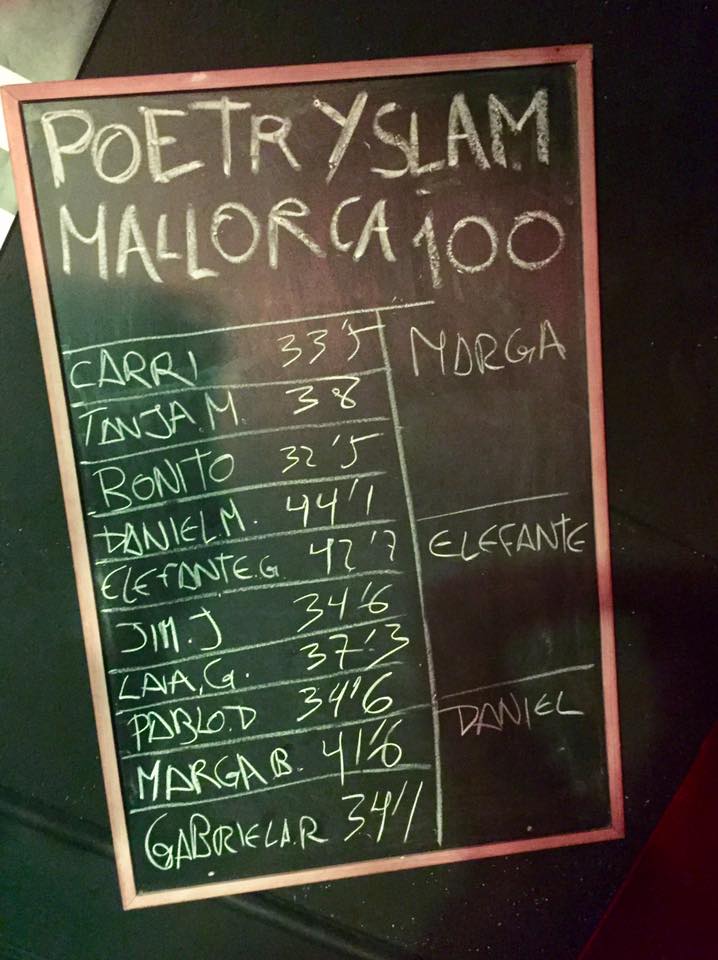 POETRY SLAM
MALLORCA 100
CARRI 33'5
TANJA M. 38
BONITO 32'5
DANIEL M. 44'1
ELEFANTE.G. 42'7
JIM.J 34'6
LAIA.G. 37'3
PABLO.D 34'6
MARGA B. 41'6
GABRIELA.R 34'1
MARGA
ELEFANTE
DANIEL